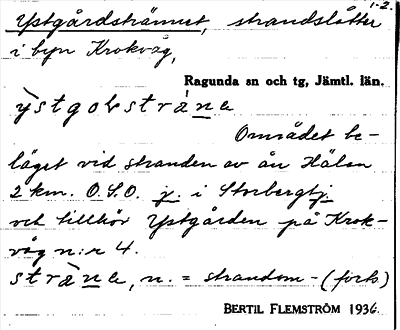 1-2.
Ystgårdsträmmet, strandslåtter
i byn Krokvåg,
Ragunda sn och tg, Jämtl. län.
ỳstgoḷstràna
Området be-
läget vid stranden av ån Hälan
2 km. O.S.O. j. i Storbergtj.
och tillhör Ystgården på Krok-
våg n:r 4.
stràna, n. = strandom - (forts)
BERTIL FLEMSTRÖM 1936.